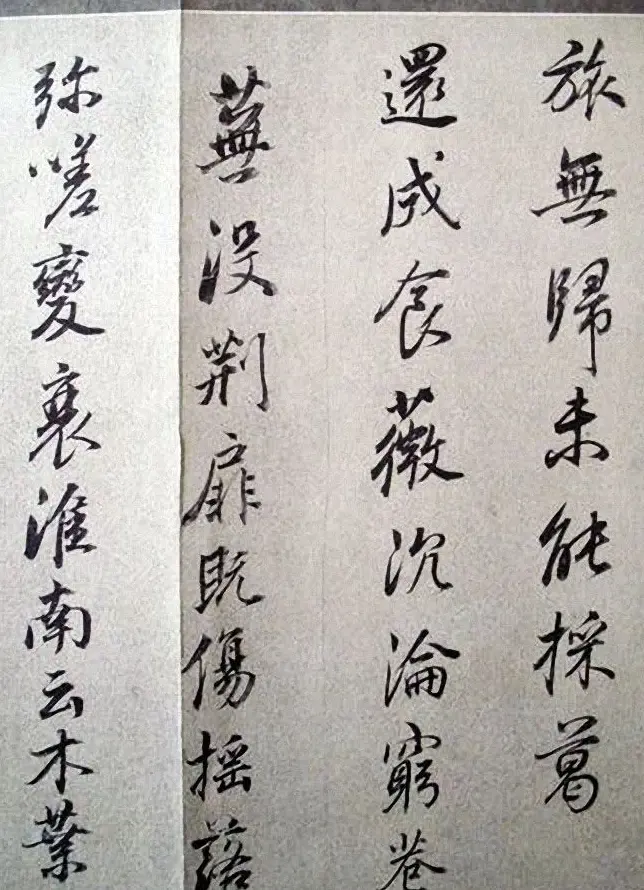 旅無歸未能採葛
還成食薇沉淪窮巷
蕪没荆扉既傷摇落
弥嗟變衰淮南云木葉